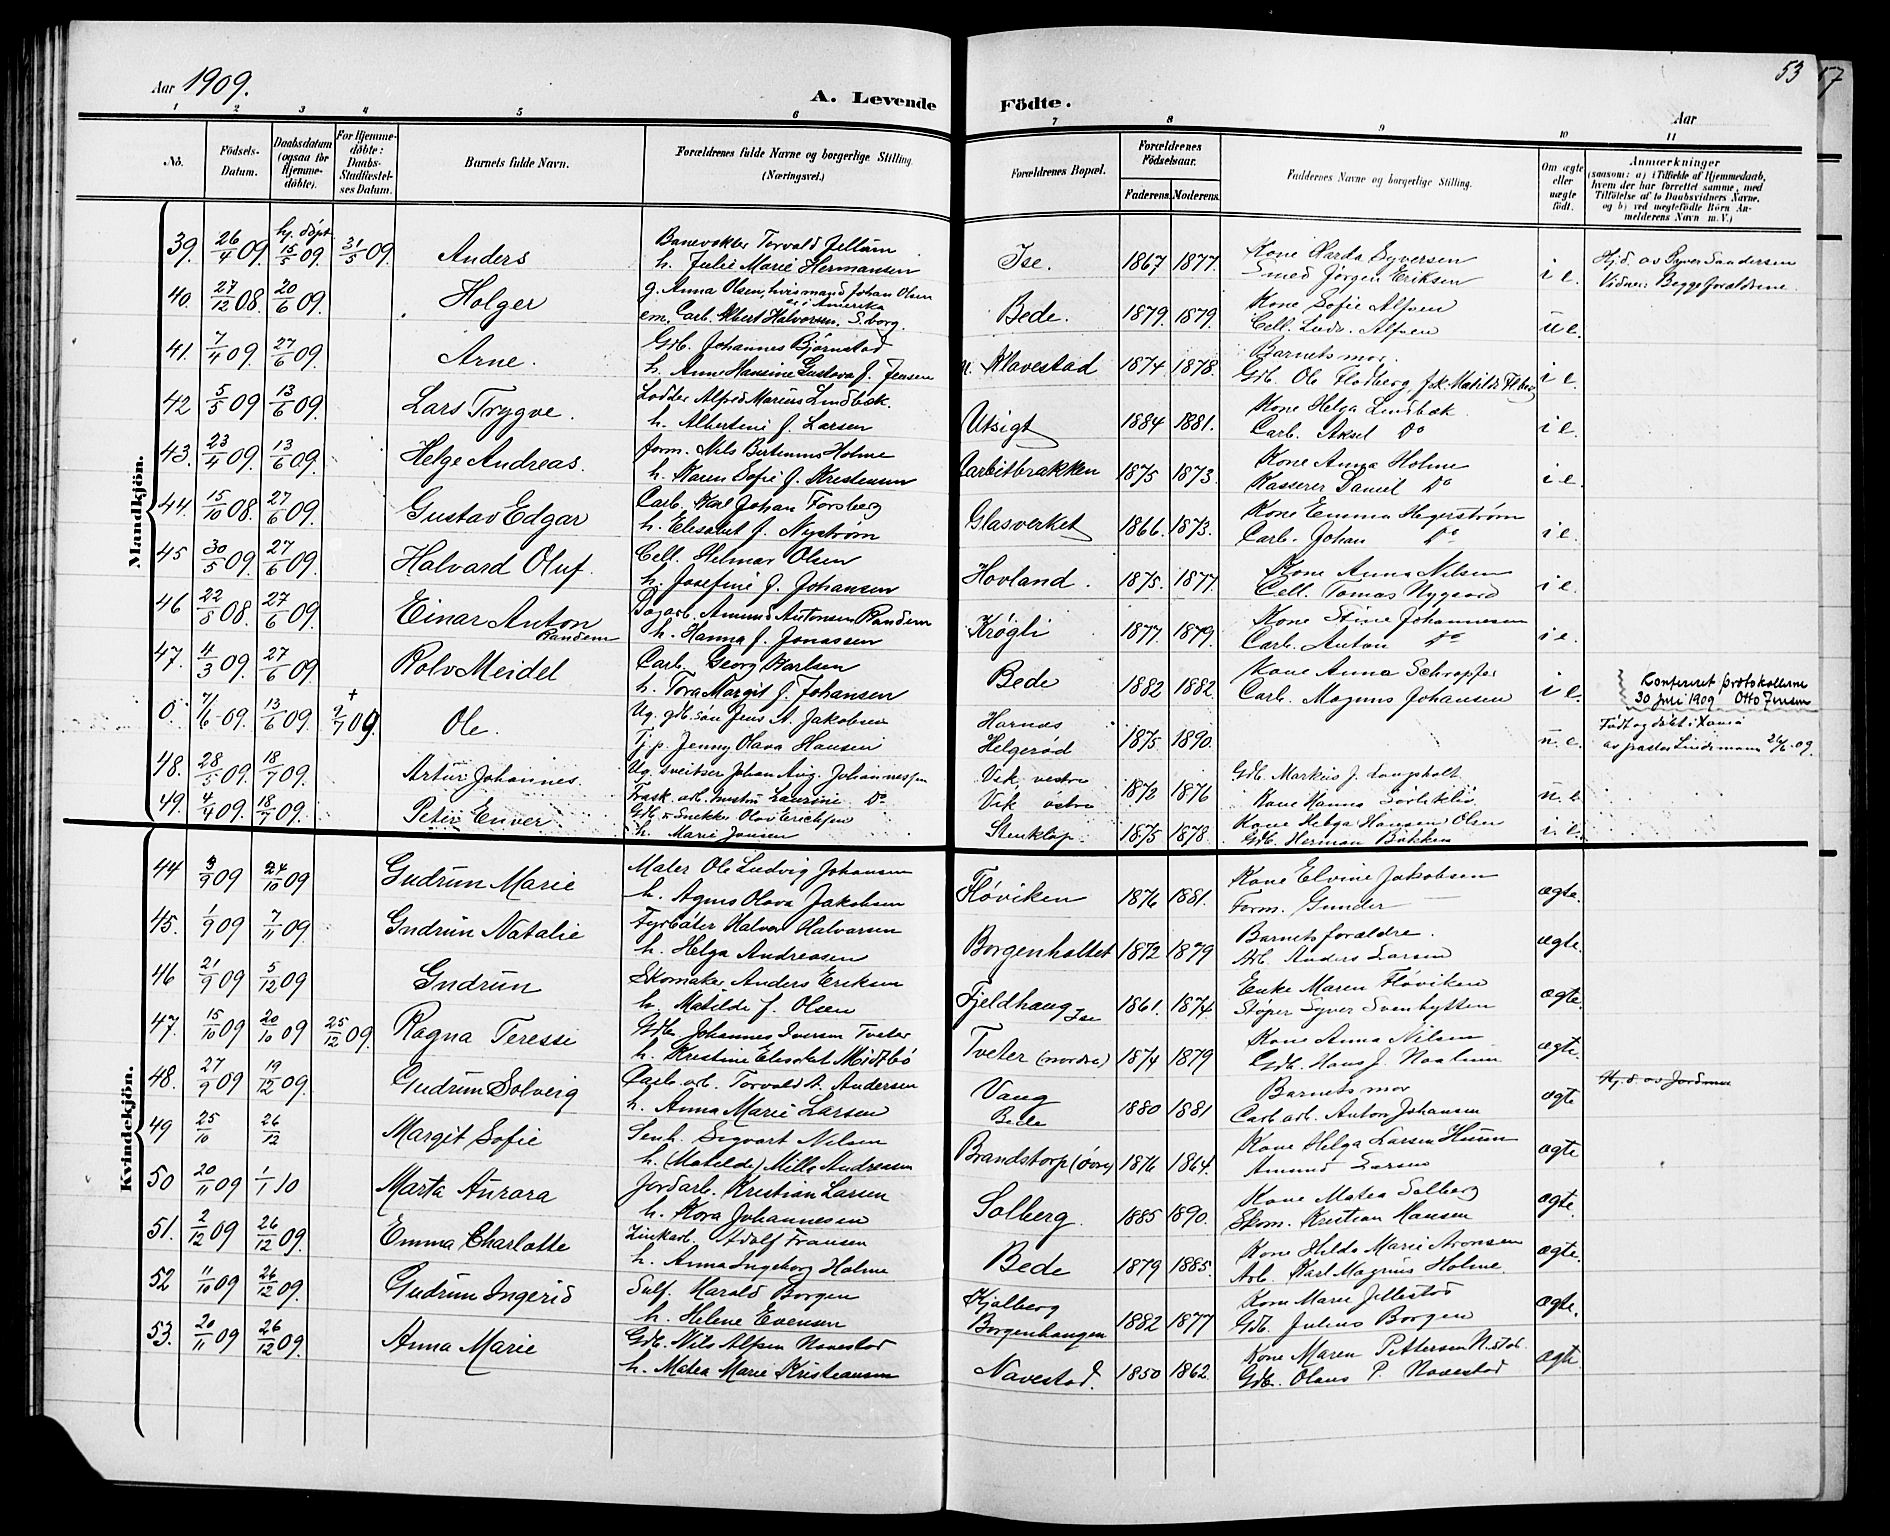 Aar 1909.
A. Levende
Födte.
Aar
53
57
1 2 3 4 5 6 7 8 9 10 11
No.
Födsels-Datum.
Daabsdatum (ogsaa for Hjemme-döbte).
For Hjemme-döbte: Daabs-Stadfæstelses Datum.
Barnets fulde Navn.
Forældrenes fulde Navne og borgerlige Stilling. (Næringsvei.)
Forældrenes Bopæl.
Forældrenes Födselsaar.
Faderens. Moderens.
Faddernes Navne og borgerlige Stilling.
Om ægte eller uægte födt.
Anmærkninger
(saasom: a) i Tilfælde af Hjemmedaab, hvem der har forrettet samme, med Tilföielse af to Daabsvidners Navne, og b) ved uægtefödte Börn Anmelderens Navn m. V.)
Mandkjön.
39. 26/4 09. hj. döpt 15/5 09. 31/5 09. Anders Banevokter Torvald Jellum Ise. 1867 1877. Kone Harda Syversen i e. Hjd. av Syver Gundersen
h. Julie Marie Hermansen Smed Jørgen Eriksen Vidner: Begge forældrene.
40. 27/12 08. 20/6 09. Holger g. Anna Olsen, hvis mand Johan Olsen er i Amerika Bede. 1879. 1879. Kone Sofie Alfsen u e.
em. Carb. Albert Halvorsen. S.borg. Cell. Ludv. Alfsen
41. 7/4 09. 27/6 09. Arne. Gdb. Johannes Bjørnstad n. Klavestad 1874. 1878. Barnets mor. i e.
h. Anne Hansine Gustava f. Jensen Gdb. Ole Flodberg, fk. Matilde
42 5/5 09 13/6 09. Lars Trygve. Lodder Alfred Marius Lindbæk. Utsigt 1884 1881. Kone Helga Lindbæk. i e.
h. Albertine f. Larsen Carb. Aksel Do
43. 23/4 09. 13/6 09. Helge Andreas. form. Nils Bertinius Holme Carbitbrakken 1875 1873. Kone Anna Holme i e.
h. Karen Sofie f. Kristensen Kasserer Daniel Do
44. 15/10 08. 27/6 09. Gustav Edgar Carb. Karl Johan Forsberg Glasverket 1866. 1873. Kone Emma Hegerstrøm i e.
h. Elisabet f. Nystrøm Carb. Johan Do
45 30/5 09. 27/6 09. Halvard Oluf. Cell. Helmar Olsen Hovland. 1875. 1877 Kone Anna Nilsen i e.
h. Josefine f. Johansen Cell. Tomas Nygaard
46 22/8 08. 27/6 09. Einar Anton Randem Dagarb. Amund Antonsen Randem Krøgli 1877. 1879. Kone Stine Johannesen i e.
h. Hanna f. Jonassen Carb. Anton Do
47. 4/3 09. 27/6 09. Rolv Meidel Carb. Georg Karlsen Bede 1882 1882. Kone Anna Schrøpfer i e. Konfereret protokollerne
h. Tora Margit f. Johansen Carb. Magnus Johansen 30 Juli 1909 Otto Jensen
0. 7/6 09. 13/6 09. + 2/7 09. Ole. Ug. gdb.søn Jens A. Jakobsen Harnæs 1875 1890. u. e. Født og døbt i
Tj. p. Jenny Olava Hansen Helgerød av pastor Lindemann 26/6 09.
48. 28/5 09. 18/7 09. Artur Johannes. Ug. sveitser Johan Aug. Johannessen Vik, vestre 1872 1876 Gdb. Markus J. Langholt u. e.
Frask. arb. hustru Laurine Do Vik østre Kone Hanna
49. 4/4 09. 18/7 09. Peter Enver Gdb. & Snekker Olav Erichsen Stenkløp. 1875 1878. Kone Helga Hansen Olsen i. e.
h. Marie Jensen Gdb. Herman Bøkken
Kvindekjön.
44 3/9 09 24/10 09 Gudrun Marie Maler Ole Ludvig Johansen Fløviken 1876 1881. Kone Elvine Jakobsen ægte.
h. Agnes Olava Jakobsen Form. Gunder —
45. 1/9 09 7/11 09. Gudrun Natalie Fyrbøter Halvor Halvorsen Borgenholtet 1872 1879 Barnets forældre. ægte
h. Helga Andreasen Arb. Anders Larsen
46 21/9 09 5/12 09 Gudrun Skomaker Anders Eriksen Fjeldhaug Ise 1861. 1874. Enke Maren Fløviken ægte.
h. Matilde f. Olsen Støper Syver Svenhytten
47. 15/10 09 20/10 09 25/12 09. Ragna Teresie Gdb. Johannes Iversen Tveter Tveter (nordre) 1874 1879 Kone Anna Nilsen ægte.
h. Kristine Elisabet Midtbø Gdb. Hans J. Naalum
48. 27/9 09 19/12 09. Gudrun Solveig Carb. arb. Torvald A. Andersen Vang 1880 1881 Barnets mor ægte Hj.d. av Jordmor
h. Anna Marie Larsen Bede Carb arb. Anton Johansen
49 25/10 26/12 Margit Sofie Senh. Sigvart Nilsen Brandstorp (øvre) 1876 1864. Kone Helga Larsen Huun ægte
h. (Matilde) Milla Andreasen Amund Larsen
50 20/11 09 1/1 10 Marta Aurora Jordarb. Kristian Larsen Solberg. 1885 1890. Kone Matea Solberg ægte.
h. Kora Johannesen Skom. Kristian Hansen
51. 2/12 09 26/12 09. Emma Charlotte Zinkarb. Adolf Fransen Bede 1879 1885. Kone Hilda Marie Aronsen ægte.
h. Anna Ingeborg Holme Arb. Karl Magnus Holme.
52 11/10 09 26/12 09. Gudrun Ingerid Sulf. Harald Borgen Kjølberg 1882 1877 Kone Marie Jellestad ægte.
h. Helene Evensen Borgenhaugen Gdb. Julius Borgen
53. 20/11 09 26/12 09. Anna Marie Gdb. Nils Alfsen Navestad Navestad. 1850 1862. Kone Maren Pettersen N.stad. ægte.
h. Matea Marie Kristiansen Gdb. Olaus P. Navestad